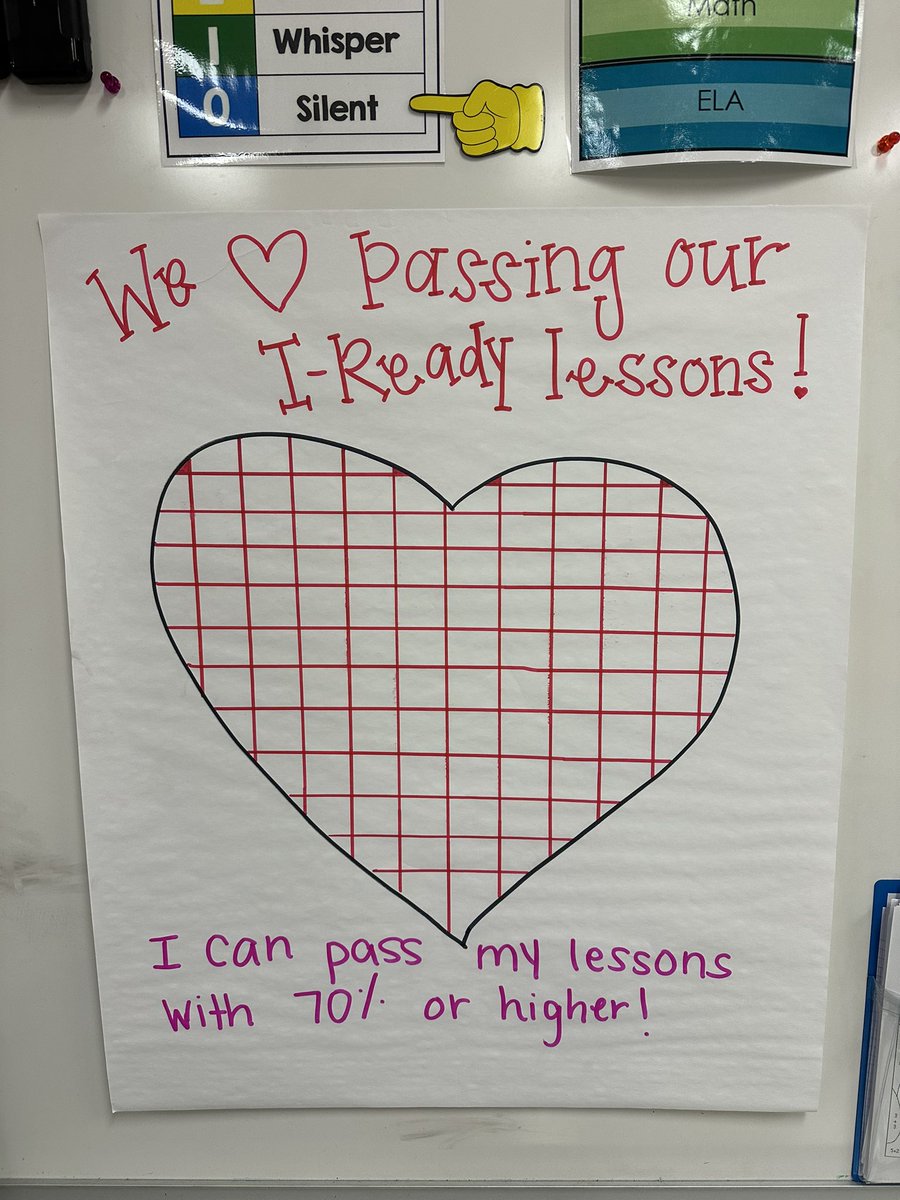 1 Whisper
0 Silent
Math
ELA
We ♡ passing our
I-Ready lessons!
I can pass my lessons
with 70% or higher!